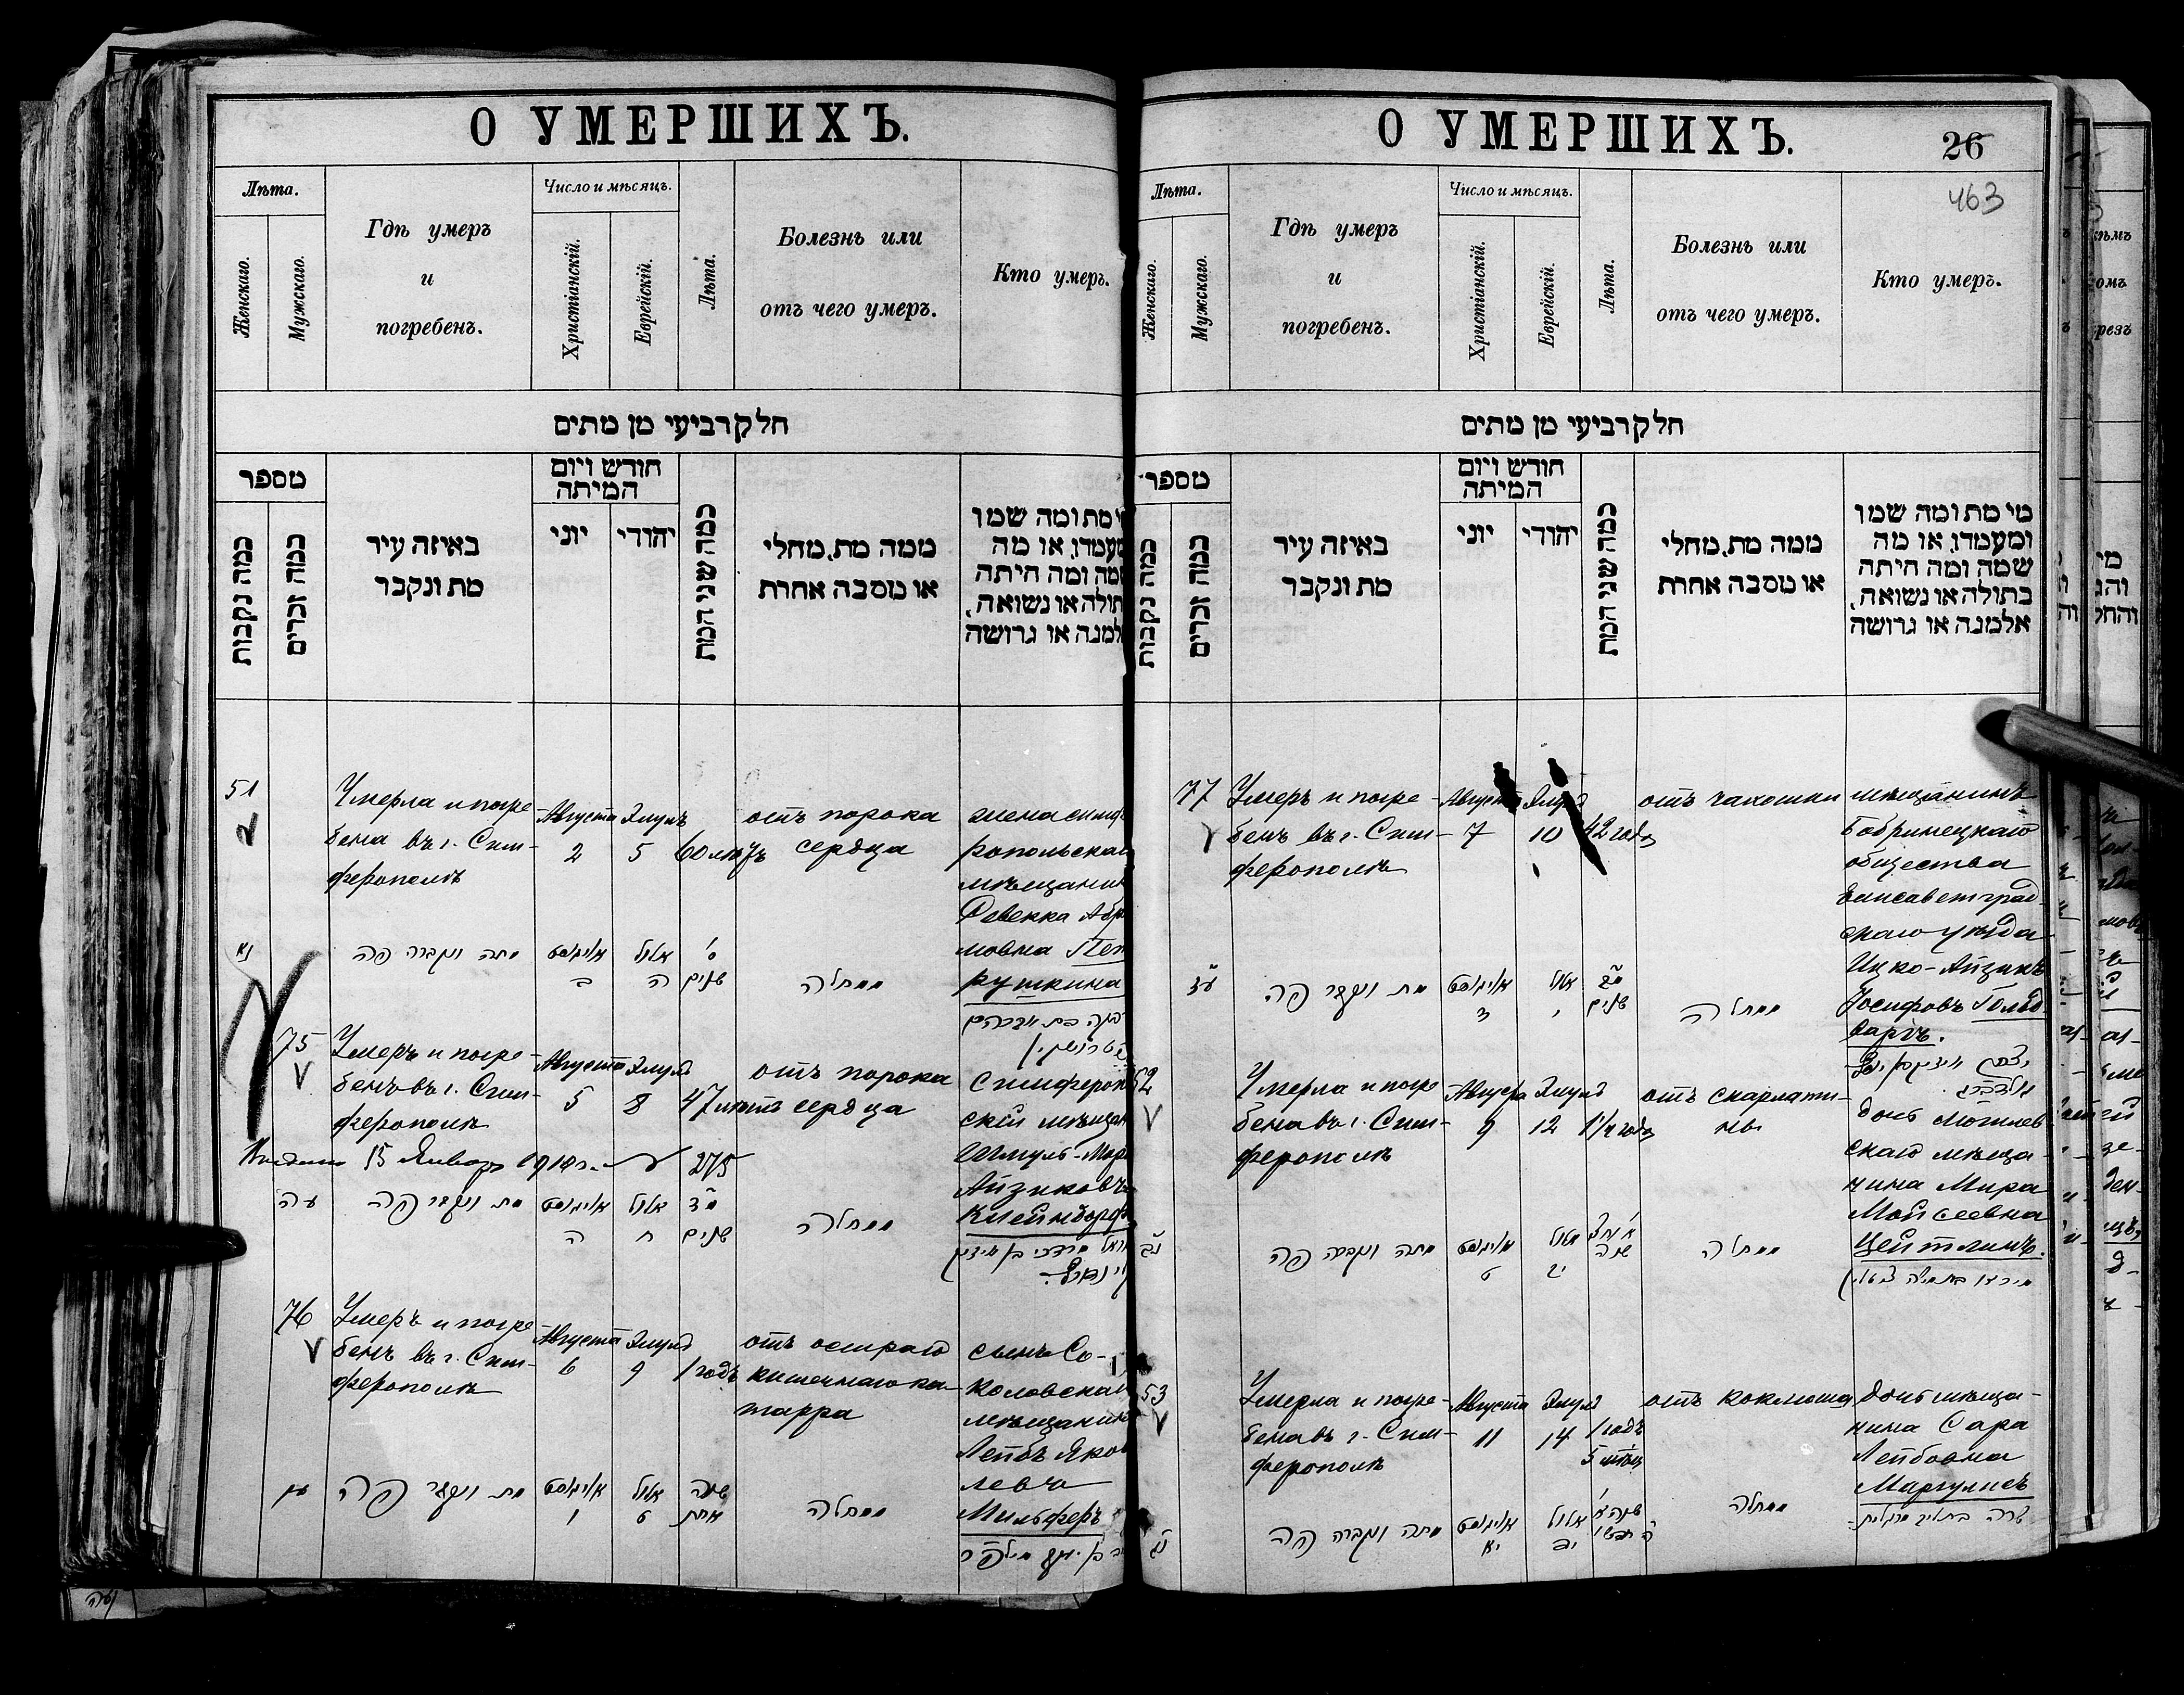 О УМЕРШИХЪ.
Лѣта.
Женскаго.
Мужскаго.
Гдѣ умеръ
и
погребенъ.
Число и мѣсяцъ.
Христіанскій.
Еврейскій.
Лѣта.
Болезнь или
отъ чего умеръ.
Кто умеръ.
חלק רביעי מן מתים
מספר
כמה נקבות
כמה זכרים
באיזה עיר
מת ונקבר
חודש ויום
המיתה
יוני
יהודי
כמה שני המת
ממה מת, מחלי
או מסבה אחרת
מי מת ומה שמו
ומעמדו, או מה
שמה ומה היתה
בתולה או נשואה,
אלמנה או גרושה
51
Умерла и погре-
бена въ г. Сим-
ферополѣ
Августа
2
Элулъ
5
60 лѣтъ
отъ порока
сердца
жена симф
ропольскаг
мѣщанин
Ревекка Абр
мовна Пет
рушкина
נא
מתה ונקברה פה
אויגוסט
ב
אלול
ה
ס'
שנים
ממחלה
75
Умеръ и погре-
бенъ въ г. Сим-
ферополѣ
Августа
5
Элулъ
8
47 лѣтъ
отъ порока
сердца
Симфероп
скій мѣщан
Шмуль-Мор
Айзиковъ
Клейнборд
15 Январ 1918 г. 275
עה
מת ונקבר פה
אויגוסט
ה
אלול
ח
מז
שנים
ממחלה
76
Умеръ и погре-
бенъ въ г. Сим-
ферополѣ
Августа
6
Элулъ
9
1 годъ
отъ остраго
кишечнаго ка-
тарра
сынъ Со-
коловскаг
мѣщанин
Лейбъ Яко
левъ
Мильферъ
עו
מת ונקבר פה
אויגוסט
ו
אלול
ט
שנה
אחת
ממחלה
О УМЕРШИХЪ.
26
463
Лѣта.
Женскаго.
Мужскаго.
Гдѣ умеръ
и
погребенъ.
Число и мѣсяцъ.
Христіанскій.
Еврейскій.
Лѣта.
Болезнь или
отъ чего умеръ.
Кто умеръ.
חלק רביעי מן מתים
מספר
כמה נקבות
כמה זכרים
באיזה עיר
מת ונקבר
חודש ויום
המיתה
יוני
יהודי
כמה שני המת
ממה מת, מחלי
או מסבה אחרת
מי מת ומה שמו
ומעמדו, או מה
שמה ומה היתה
בתולה או נשואה,
אלמנה או גרושה
77
Умеръ и погре-
бенъ въ г. Сим-
ферополѣ
Августа
7
Элулъ
10
42 года
отъ чахотки
мѣщанинъ
Бобринецкаго
общества
Елисаветград-
скаго уѣзда
Ицко-Айзикъ
Іосифовъ Гольд-
варгъ.
עז
מת ונקבר פה
אויגוסט
ז
אלול
י
מב
שנים
ממחלה
52
Умерла и погре-
бена въ г. Сим-
ферополѣ
Августа
9
Элулъ
12
1 1/4 года
отъ скарлати-
ны
дочь Могилев-
скаго мѣща-
нина Мира
Мойсеевна
Цейтлинъ.
נב
מתה ונקברה פה
אויגוסט
ט
אלול
יב
ממחלה
53
Умерла и погре-
бена въ г. Сим-
ферополѣ
Августа
11
Элулъ
14
1 годъ
5 мѣсяц
отъ коклюша
дочь мѣща-
нина Сара
Лейбовна
Маргулисъ
נג
מתה ונקברה פה
אויגוסט
יא
אלול
ממחלה